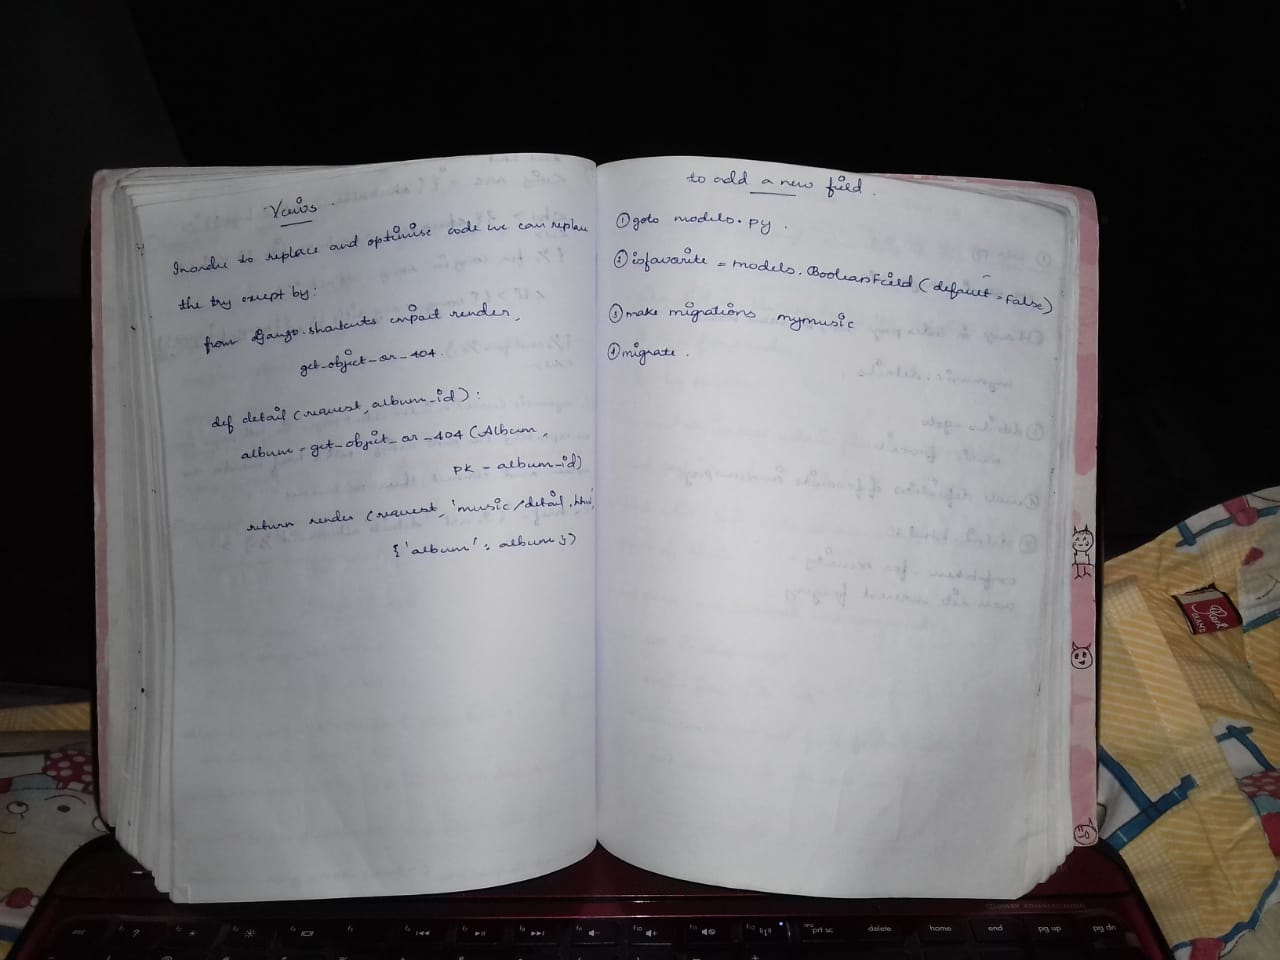 Veiws.
Inorder to replace and optimise code we can replace
the try except by:
from django.shortcuts import render,
get-object-or-404.
def detail (request, album-id):
album = get-object-or-404 (Album,
pk = album-id)
return render (request, 'music/detail.html',
{'album': album})
to add a new field.
① goto models.py.
② isfavorite = models.BooleanField (default = False)
③ make migrations mymusic
④ migrate.
esc
prt sc
delete
home
end
pg up
pg dn